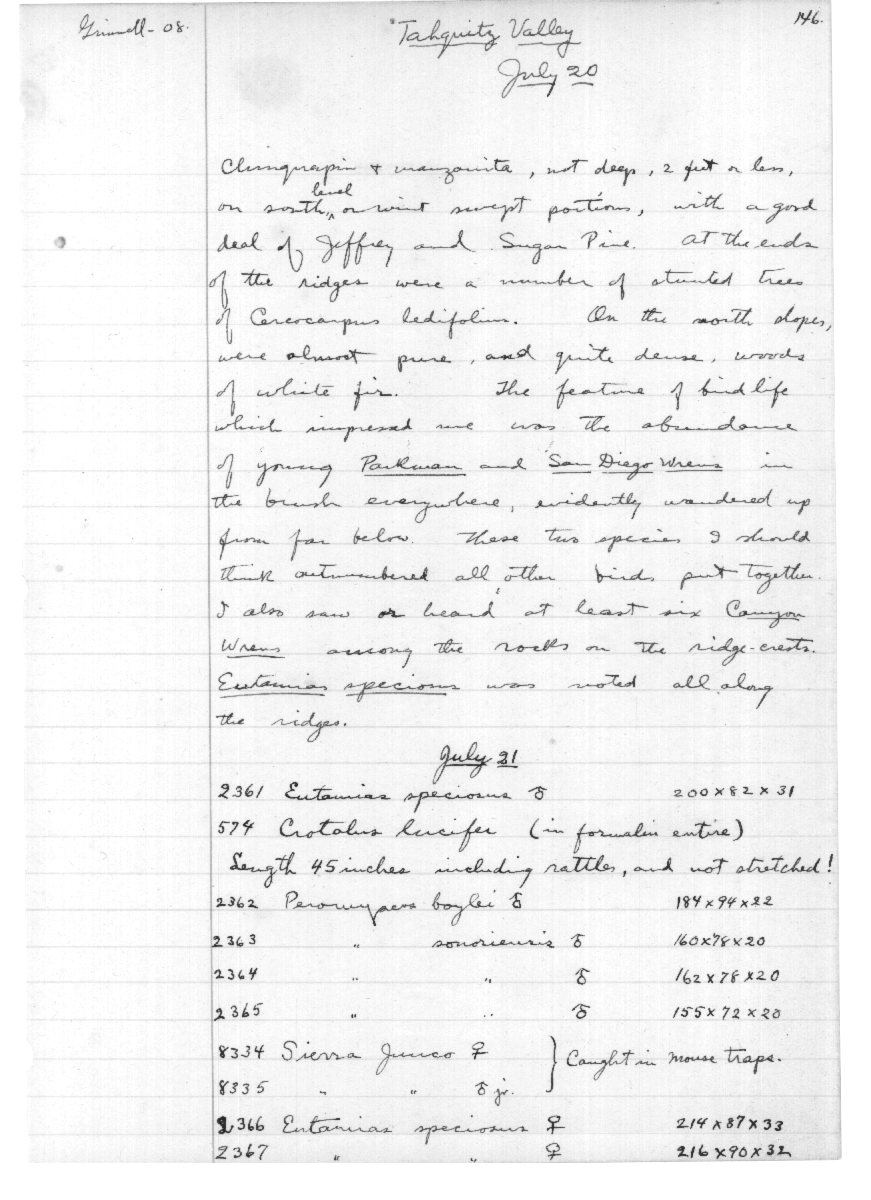 Grinnell - 08.
146.
Tahquitz Valley
July 20
Chinquapin & manzanita, not deep, 2 feet or less,
level
on south, ‸ or wind swept portions, with a good
deal of Jeffrey and Sugar Pine. At the ends
of the ridges were a number of stunted trees
of Cercocarpus ledifolius. On the north slopes,
were almost pure, and quite dense, woods
of white fir. The feature of bird life
which impressed me was the abundance
of young Parkman and San Diego Wrens in
the brush everywhere, evidently wandered up
from far below. These two species I should
think outnumbered all other birds put together.
I also saw or heard at least six Canyon
Wrens among the rocks on the ridge-crests.
Eutamias speciosus was noted all along
the ridges.
July 21
2361 Eutamias speciosus ♂ 200 x 82 x 31
574 Crotalus lucifer (in formalin entire)
Length 45 inches including rattles, and not stretched!
2362 Peromyscus boylei ♂ 184 x 94 x 22
2363 " sonoriensis ♂ 160 x 78 x 20
2364 " " ♂ 162 x 78 x 20
2365 " " ♂ 155 x 72 x 20
8334 Sierra Junco ♀ } Caught in mouse traps.
8335 " " ♂ jr.
2366 Eutamias speciosus ♀ 214 x 87 x 33
2367 " " ♀ 216 x 90 x 32